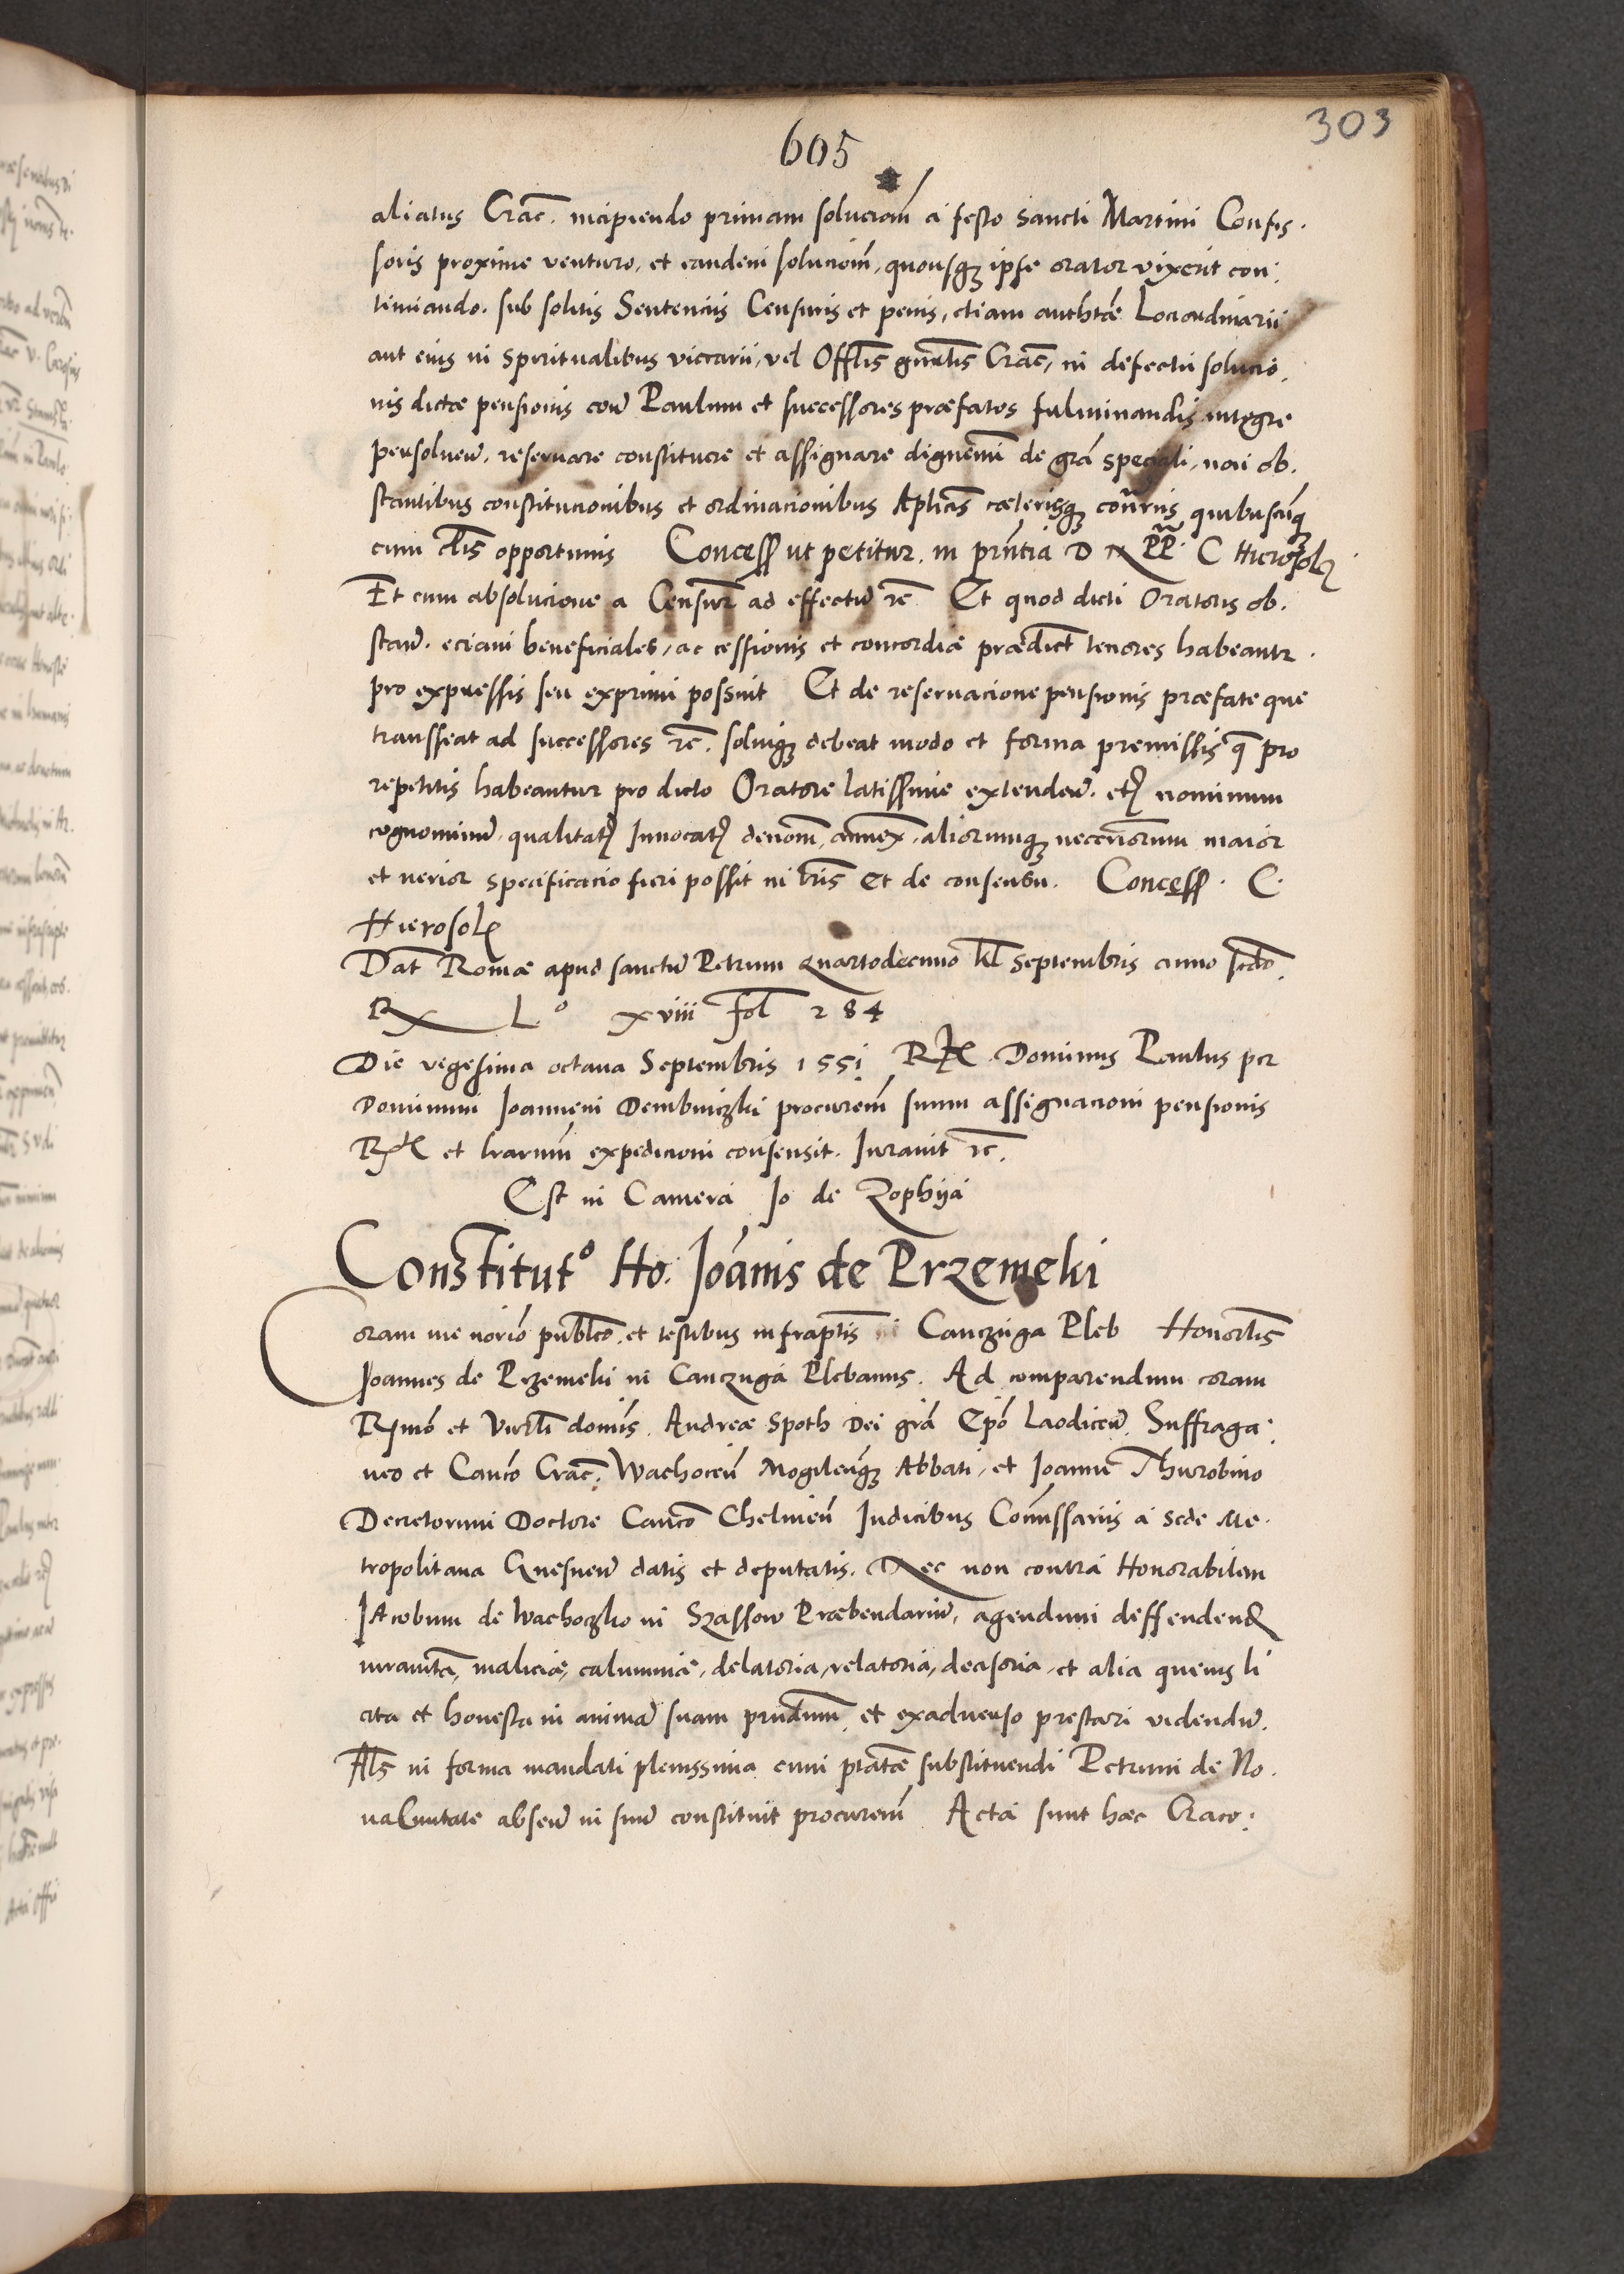 303
605
aliatus Crac̄. incipiendo primam soluciom̄ a festo sancti Martini Confes.
soris proxime venturo, et eandem soluciom̄, quousq₃ ipse orator vixerit con:
tinuando. sub solitis Sentenciis Censuris et penis, etiam auchtāe Loci ordinarii
aut eius in spiritualibus viccarii, vel Offlīs gnrālis Crac̄, in defectū solucio.
nis dictae pensionis con̄ Paulum et successores praefatos fulminandis integre
persolven̄. reservare constituere et assignare dignemi̅ de grā speciali, non ob.
stantibus constitucionibus et ordinacionibus Aplicis̄ caeterisq₃ contrr̄iis quibuscūq₃
cum cl̄is opportunis Concess ut petitur. in prn̄tia D N PP̄. C Hierosol₃
Et cum absolucione a Censur̄ ad effectū rc̄ Et quod dicti Oratoris ob.
stan̄. eciam beneficiales, ac cessionis et concordiae praedict̄ tenores habeantr.
pro expressis seu exprimi possint Et de reservacione pensionis praefate que
transseat ad successores rc̄. solviq₃ debeat modo et forma premissis q̄ pro
repetitis habeantur pro dicto Oratore latissime extenden̄. et₃ nominum
cognominū. qualitat₃ Invocat₃ denom̄, annex̄. aliorumq₃ necc̄riorum maior
et verior specificacio fieri possit in lr̄is et de consensu. Concess. C.
Hierosol₃
Dat̄ Romae apud sanctū Petrum quartodecimo kl̄ Septembris anno scdō.
Rx L.o xviii fol̄ 284
Die vegesima octava Septembris 1551 Rtx Dominus Paulus per
Dominum Joannem Dembniczki procurem̄ suum assignacioni pensionis
Rtx et lrarum̄ expedicioni consensit. Iuravit rc̄.
Est in Camera Io de Zophya
Constitut.o Ho. Joānis de Przemeki
Coram me norīo publc̄o, et testibus infraptis̄ in Canczuga Pleb Honorlis̄
Joannes de Przemeki in Canczuga Plebanus. Ad comparendum coram
Rmō et Vnrlī domīs. Andreae Spoth Dei grā Epō Laodicen̄. Suffraga:
neo et Cancō Crac̄. Wachocen̄ Mogilenq₃ Abbati, et Joanne Thurobino
Decretorum Doctore Cancō Chelmen̄ Iudicibus Comissariis a sede Me.
tropolitana Gnesnen̄ datis et deputatis. Nec non contra Honorabilem
Jacobum de Wachoczko in Szassow Praebendariū, agendum deffendend
iuramtā, maliciae, calumniae, delatoria, relatoria, decisoria, et alia quevis li
cita et honesta in animā suam prndum̄ et exadverso prestari videndū.
Als̄ in forma mandati plenissima cum ptātae substituendi Petrum de No.
va Civitate absen̄ in suū constituit procurem̄ Acta sunt haec Craco: